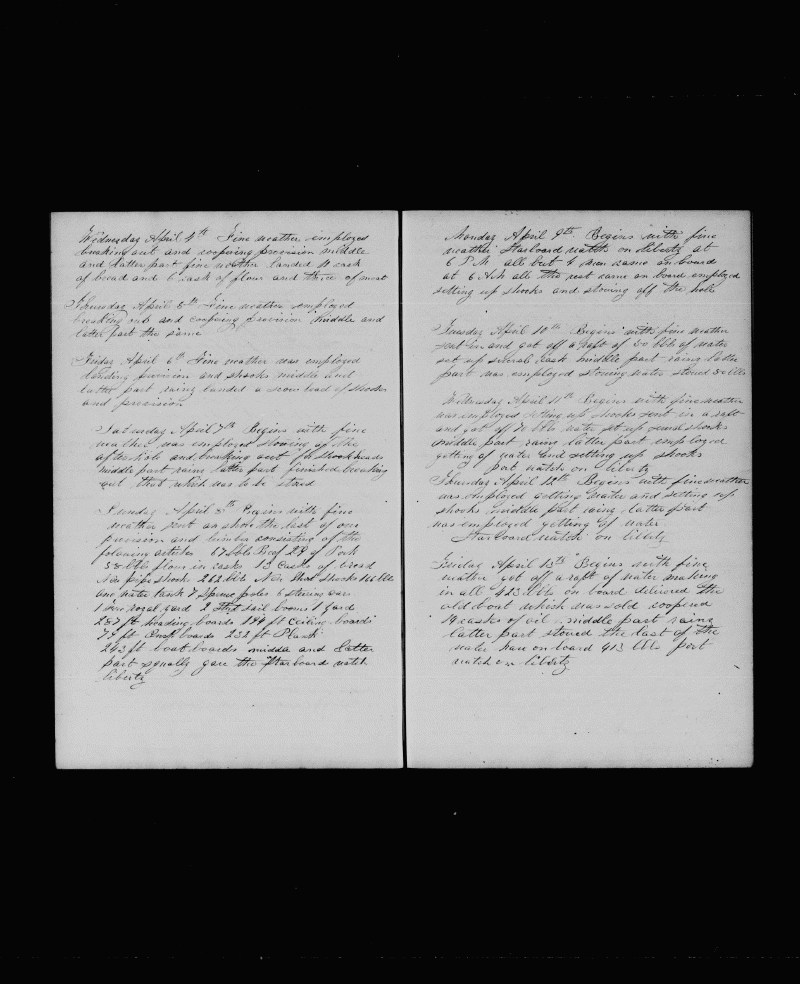 Wednesday April 4th Fine weather employed
breaking out and coopering provision middle
and latter part fine weather landed cask
of bread and 6 cask of flour and three of meat
Thursday April 5th Fine weather employed
breaking out and coopering provision middle and
latter part the same
Friday April 6th Fine weather was employed
landing provision and shooks middle and
latter part rainy landed a scow load of shooks
and provision
Saturday April 7th Begins with fine
weather was employed stowing of the
after hole and breaking out shook heads
middle part rains latter part finished breaking
out that which was to be stored
Sunday April 8th Begins with fine
weather sent on shore the last of our
provision and lumber consisting of the
following articles 17 bbls Beef 29 of Pork
38 bbls flour in casks 13 Casks of bread
pipe shooks 262 bbls shooks
one water tank 7 Spruce poles 6 steering oars
1 royal yard 2 Stud sail booms 1 yard
287 ft heading boards 184 ft ceiling boards
ft boards 232 ft Plank
243 ft boat boards middle and latter
part squally gave the Starboard watch
liberty
Monday April 9th Begins with fine
weather Starboard watch on liberty at
6 P.M. all but 4 men came on board
at 6 A.M. all the rest came on board employed
setting up shooks and stowing off the hole
Tuesday April 10th Begins with fine weather
sent in and got off a raft of 50 bbls of water
set up several cask middle part rainy latter
part was employed stowing water stowed bbls
Wednesday April 11th Begins with fine weather
was employed setting up shooks sent in a raft
and got off bbls water set up some shooks
middle part rains latter part employed
getting of water and setting up shooks
port watch on liberty
Thursday April 12th Begins with fine weather
was employed getting water and setting up
shooks middle part rainy latter part
was employed getting of water
Starboard watch on liberty
Friday April 13th Begins with fine
weather got off a raft of water making
in all 423 bbls on board delivered the
old boat which was sold coopered
19 casks of oil middle part rainy
latter part stowed the last of the
water have on board 413 bbls port
watch on liberty